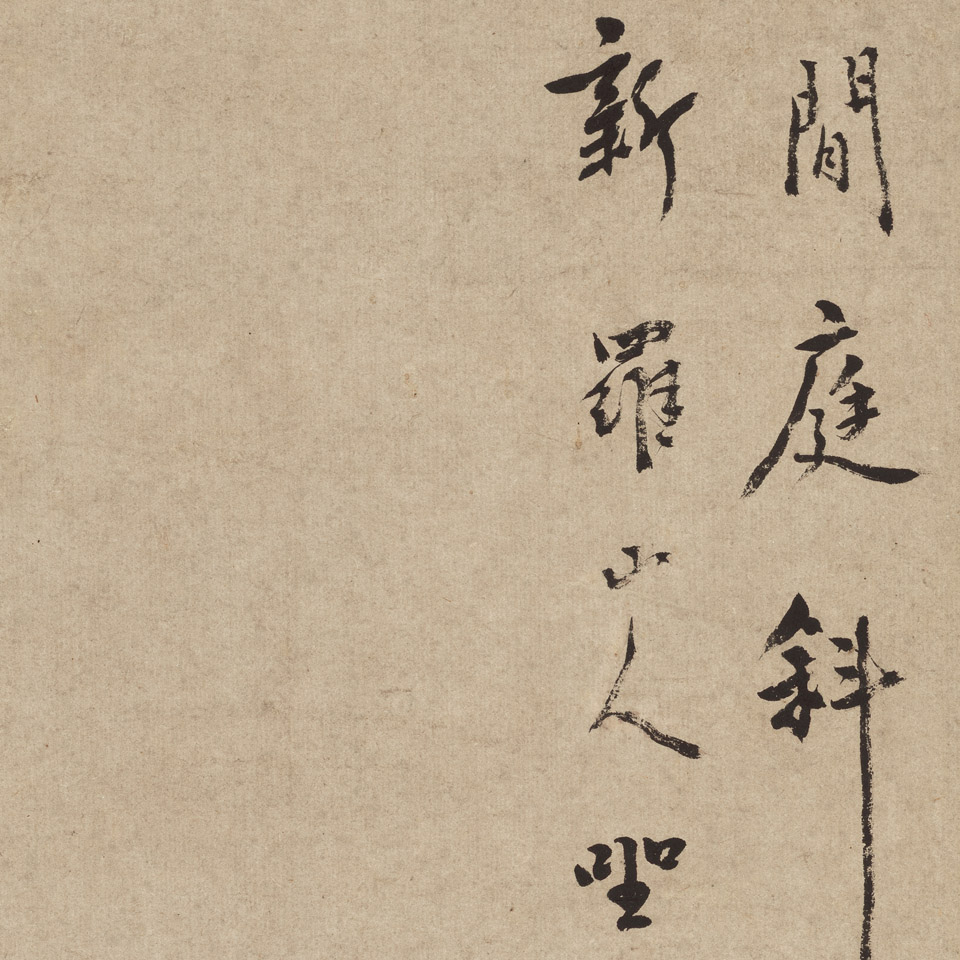 閒庭斜
新羅山人聖